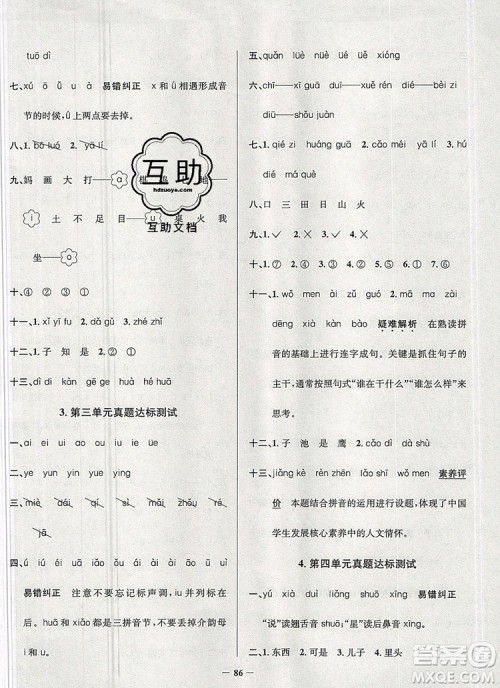 tuō dì
七、xú ō ū u à 易错纠正 x和ü相遇形成音
节的时候,ü上两点要去掉。
八、1. bō luó 2. yā lí
九、妈 画 大 打 a 棋 鸡 地
i 土 不 足 目 u 桌 火 我
坐 a
十、④ ② ① ③
十一、1. xǐ yī fu 2. dǎ gǔ 3. zhé zhǐ
十二、1. 子 知 是 2. ②①
十三、dì di kàn gē ge huà huā
3. 第三单元真题达标测试
一、ai ei ui ao ou iu ie üe er
二、ye yun yue yuan
三、miè dái cài mài zhóu zuó
jiā
四、ü iú éi uì ái āo iū üè uǐ uì
易错纠正 注意不要忘记标声调,iu并列标在
后。huā和xiǎo都是三拼音节,不要丢掉介韵母
i和u。
互助
hdzuoye.com
互助文档
五、quǎn lǚè yuè yuán
六、chī——xī guā dài——shǒu biǎo bēi zi
diū——shǒu juàn
七、1. qié zi huáng guā 2. cǎi méi zi
huā duǒ
八、口 三 田 日 山 火
九、1. ✓ 2. ✕ 3. ✕ 4. ✓
十、1. ② 2. ① 3. ④ 4. ⑤ 5. ③ 6. ⑥
十一、1. wǒ men ài xué xí 2. mā ma zài
děng xiǎo nā nā 疑难解析 在熟读拼
音的基础上进行连字成句。关键是找句子的
主干,通常按照句式“谁在干什么”“谁干什么”
来思考。
十二、1. 子 池 是 鹰 2. ①dà shù
十三、jiǎng kē rèn zhēn tīng jiǎng 素养评
价 本题结合拼音的运用进行设题,体现了中国
学生发展核心素养中的人文情怀。
4. 第四单元真题达标测试
一、sì yuè duì liǎng shuō xīng 易错纠正
“说”读翘舌音,“星”读后鼻音。
二、1. 东西 2. 可是 3. 儿子 4. 里头
86
答案圈
MXQE.COM